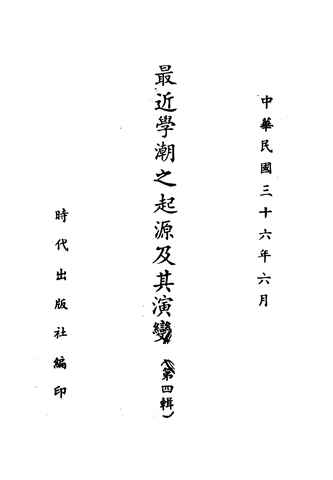 中華民國三十六年六月
最近學潮之起源及其演變（第四輯）
時代出版社編印